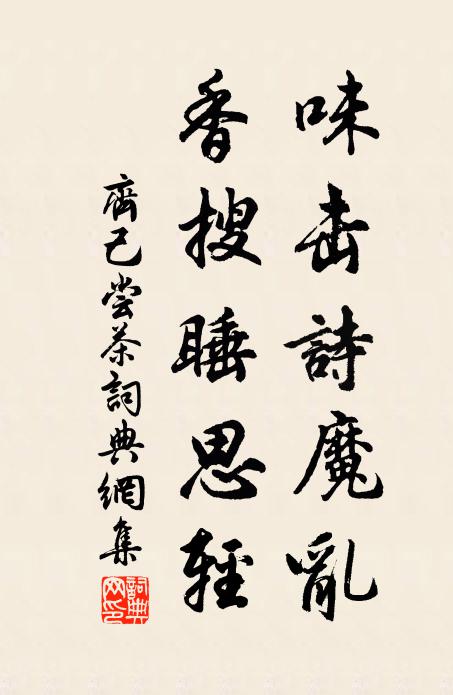 味击詩魔亂
香搜睡思輕
齊己嘗茶詞典網集
詞典網印